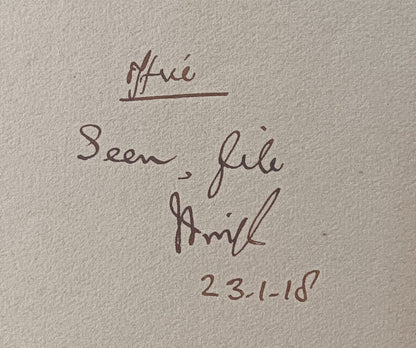 Office
Seen, file
23-1-18